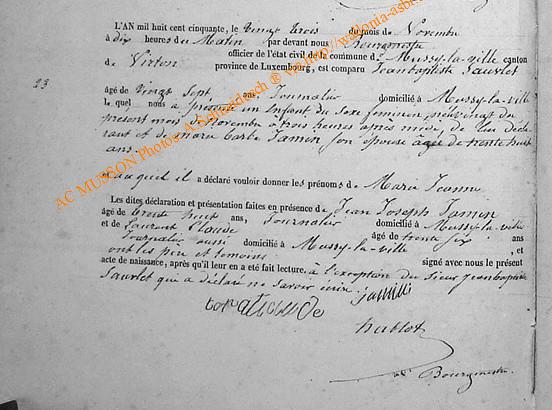 L'AN mil huit cent cinquante, le vingt trois du mois de Novembre
à dix heures du Matin par devant nous Bourgmestre
officier de l'état civil de la commune de Mussy-la-ville canton
de Virton province de Luxembourg, est comparu Jeanbaptiste Sauvlet
23
âgé de Vingt Sept ans Journalier domicilié à Mussy-la-ville
le quel nous a présenté un Enfant du Sexe feminin, né
présent mois de Novembre à trois heures après midi, de lui décla
rant et de marie barbe Jamin, son épouse agée de trente huit
ans.
auquel il a déclaré vouloir donner les prénoms de Marie Jeanne
Les dites déclaration et présentation faites en présence de Jean Joseph Jamin
âgé de trente huit ans, Journalier domicilié à Mussy-la-ville
et de Laurent Claude âgé de trente six ans
Journalier aussi domicilié à Mussy-la-ville, et
ont les père et temoins signé avec nous le présent
acte de naissance, après qu'il leur en a eté fait lecture, à l'exception du Sieur Jeanbaptiste
Sauvlet qui a déclaré ne savoir écrire. jamin
hablot
Bourgmestre
AC MUSSON Photos: A.Schaudeck ® via http://wallonia-asb